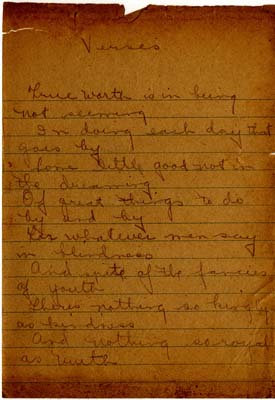 Verses
True worth is in being
not seeming
In doing each day that
goes by
Some little good not in
the dreaming
Of great things to do
by and by
For whatever men say
in blindness
And spite of the fancies
of youth
Theres nothing so kingly
as kindness
And nothing so royal
as truth